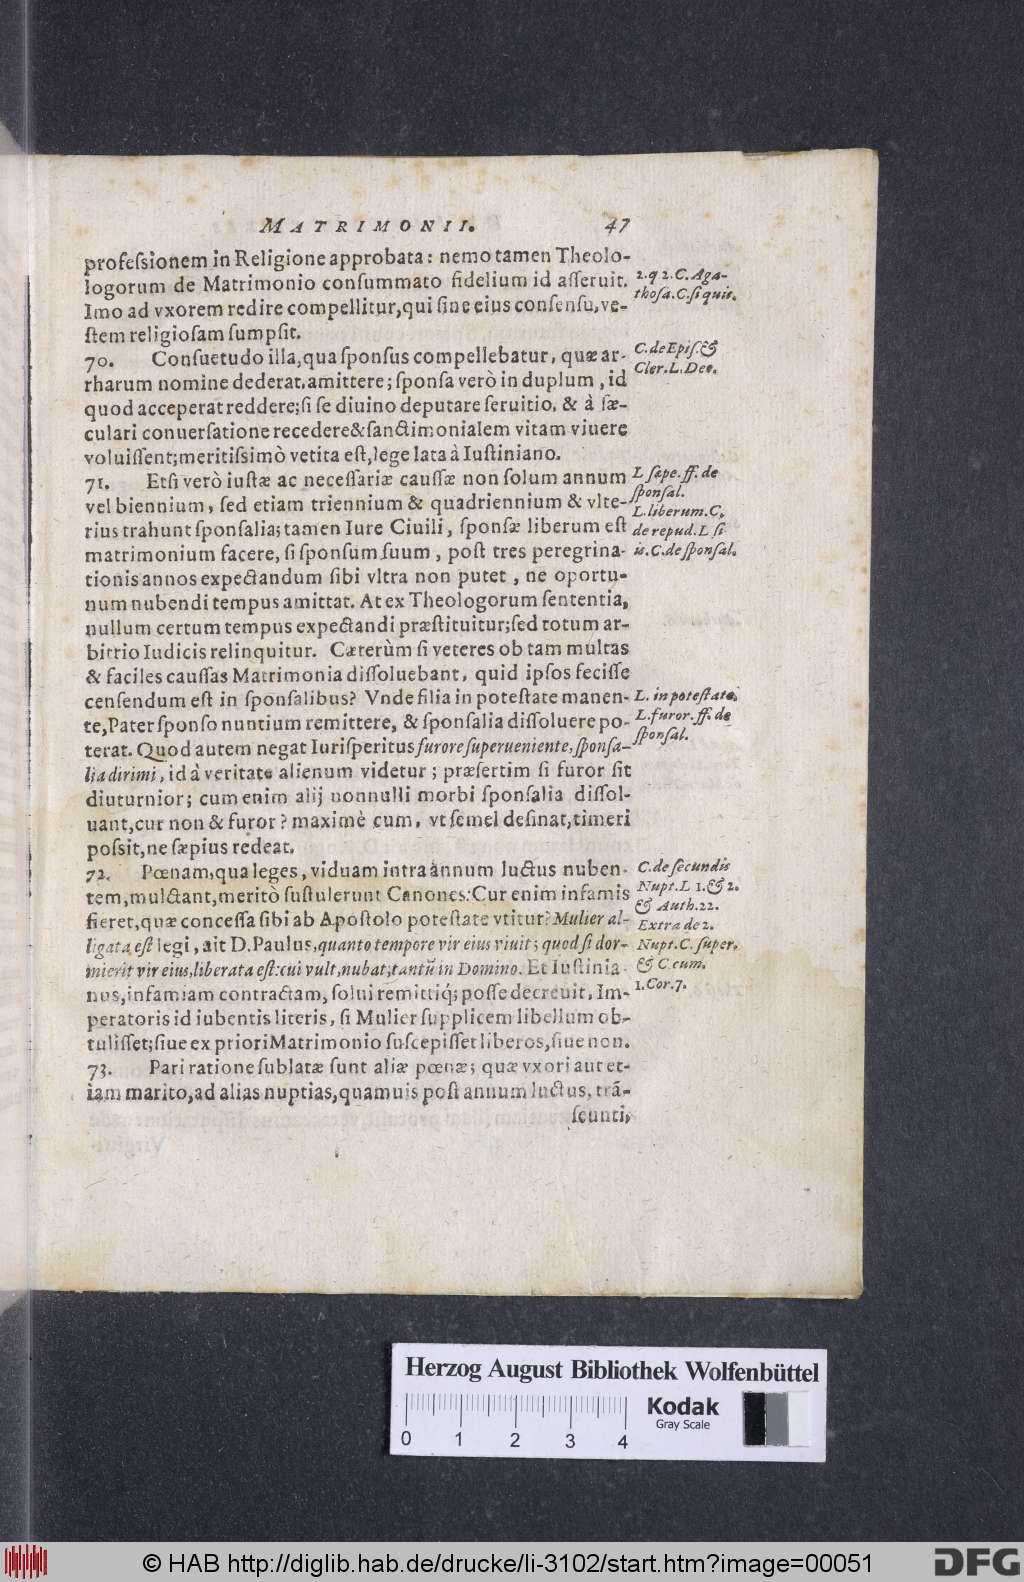 MATRIMONII. 47
profeſsionem in Religione approbata: nemo tamen Theolo-
logorum de Matrimonio conſummato fidelium id aſſeruit.
Imo ad vxorem redire compellitur, qui ſine eius conſenſu, ve-
ſtem religioſam ſumpſit.
70. Conſuetudo illa, qua ſponſus compellebatur, quæ ar-
rharum nomine dederat, amittere; ſponſa verò in duplum, id
quod acceperat reddere; ſi ſe diuino deputare ſeruitio, & à ſæ-
culari conuerſatione recedere & ſanctimonialem vitam viuere
voluiſſent; meritiſsimò vetita eſt, lege lata à Iuſtiniano.
71. Etſi verò iuſtæ ac neceſſariæ cauſſæ non ſolum annum
vel biennium, ſed etiam triennium & quadriennium & vlte-
rius trahunt ſponſalia; tamen Iure Ciuili, ſponſæ liberum eſt
matrimonium facere, ſi ſponſum ſuum, poſt tres peregrina-
tionis annos expectandum ſibi vltra non putet, ne oportu-
num nubendi tempus amittat. At ex Theologorum ſententia,
nullum certum tempus expectandi præſtituitur; ſed totum ar-
bitrio Iudicis relinquitur. Cæterùm ſi veteres ob tam multas
& faciles cauſſas Matrimonia diſſoluebant, quid ipſos feciſſe
cenſendum eſt in ſponſalibus? Vnde filia in poteſtate manen-
te, Pater ſponſo nuntium remittere, & ſponſalia diſſoluere po-
terat. Quod autem negat Iuriſperitus furore ſuperueniente, ſponſa-
lia dirimi, id à veritate alienum videtur; præſertim ſi furor ſit
diuturnior; cum enim alij nonnulli morbi ſponſalia diſſol-
uant, cur non & furor? maximè cum, vt ſemel deſinat, timeri
poſsit, ne ſæpius redeat.
72. Pœnam, qua leges, viduam intra annum luctus nuben-
tem, mulctant, meritò ſuſtulerunt Canones: Cur enim infamis
fieret, quæ conceſſa ſibi ab Apoſtolo poteſtate vtitur? Mulier al-
ligata eſt legi, ait D. Paulus, quanto tempore vir eius viuit; quod ſi dor-
mierit vir eius, liberata eſt: cui vult, nubat; tantũ in Domino. Et Iuſtinia-
nus, infamiam contractam, ſolui remittiq́; poſſe decreuit, Im-
peratoris id iubentis literis, ſi Mulier ſupplicem libellum ob-
tuliſſet; ſiue ex priori Matrimonio ſuſcepiſſet liberos, ſiue non.
73. Pari ratione ſublatæ ſunt aliæ pœnæ; quæ vxori aut et-
iam marito, ad alias nuptias, quamuis poſt annum luctus, trã-
ſeunti,
2. q 2. C. Aga-
thoſa. C. ſi quis.
C. de Epiſ. &
Cler. L. Deo.
L ſæpe. ff. de
ſponſal.
L. liberum. C.
de repud. L ſi
is. C. de ſponſal.
L. in poteſtate.
L. furor. ff. de
ſponſal.
C. de ſecundis
Nupt. L 1. & 2.
& Auth. 22.
Extra de 2.
Nupt. C. ſuper.
& C cum.
1. Cor. 7.
Herzog August Bibliothek Wolfenbüttel
Kodak
Gray Scale
0 1 2 3 4
© HAB http://diglib.hab.de/drucke/li-3102/start.htm?image=00051
DFG